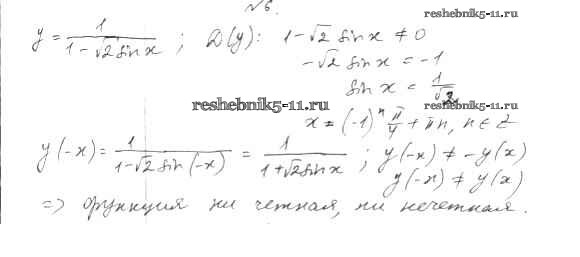 №6. reshebnik5-11.ru
y = 1/(1-√2 sin x) ; D(y): 1-√2 sin x ≠ 0
-√2 sin x = -1
sin x = 1/√2
reshebnik5-11.ru
x = (-1)ⁿ π/4 + πn, n ∈ Z
reshebnik5-11.ru
y(-x) = 1/(1-√2 sin(-x)) = 1/(1+√2 sin x) ; y(-x) ≠ -y(x)
y(-x) ≠ y(x)
=> функция ни четная, ни нечетная.